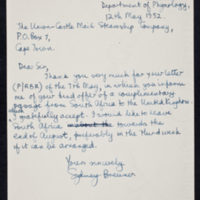 Department of Physiology,
12th May 1952.
The Union-Castle Mail Steamship Company,
P.O. Box 7,
Cape Town.
Dear Sir,
Thank you very much for your letter
(P/RBR) of the 7th May, in which you inform
me of your kind offer of a complimentary
passage from South Africa to the United Kingdom.
I gratefully accept. I would like to leave
South Africa towards the
end of August, preferably in the third week
if it can be arranged.
Yours sincerely
Sydney Brenner